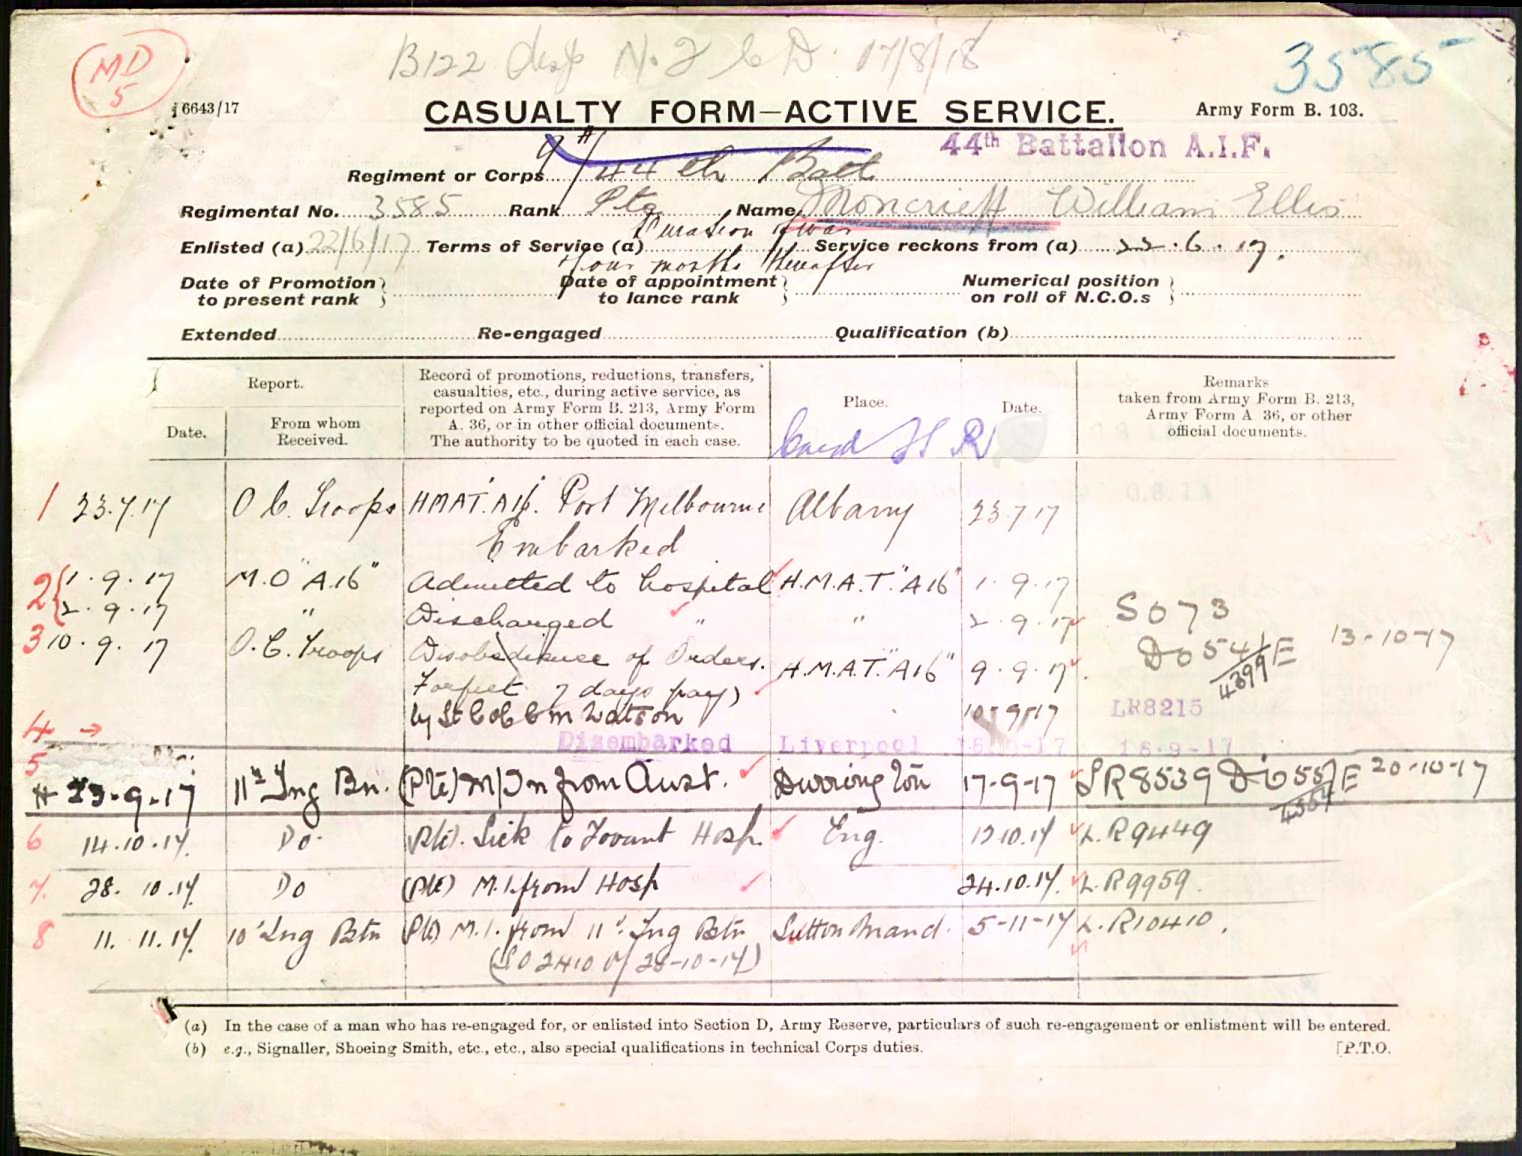 MD
5
B122 N. 17/8/18
3585
6643/17
CASUALTY FORM—ACTIVE SERVICE.
Army Form B. 103.
44th Battalion A.I.F.
Regiment or Corps 9/44th Batt
Regimental No. 3585 Rank Pte Name Moncrieff William Ellis
Duration of war
Enlisted (a) 22/6/17 Terms of Service (a) Service reckons from (a) 22.6.17.
Four months thereafter
Date of Promotion to present rank } Date of appointment to lance rank } Numerical position on roll of N.C.O.s }
Extended Re-engaged Qualification (b)
Report.
Date.
From whom Received.
Record of promotions, reductions, transfers, casualties, etc., during active service, as reported on Army Form B. 213, Army Form A. 36, or in other official documents. The authority to be quoted in each case.
Place.
Date.
Remarks taken from Army Form B. 213, Army Form A. 36, or other official documents.
Card
1 23.7.17 O C. Troops HMAT. A16. Port Melbourne Albany 23 7 17
Embarked
2 { 1.9.17 M.O "A.16" Admitted to hospital H.M.A.T. "A16" 1.9.17
2.9.17 " Discharged " " 2.9.17 S073
3 10.9.17 O.C. Troops Disobedience of Orders. H.M.A.T. "A16" 9.9.17. D054/E 13-10-17
4399
Forfeit 7 days pay)
by Lt Col C M Watson 10/9/17 LR8215
4 → Disembarked Liverpool 16.9.17 16-9-17
5
23-9-17 11th Tng Bn. (Pte) M/In from Aust. Durrington 17-9-17 LR8539 D055/E 20-10-17
6 14.10.17. Do. (Pte). Sick to Fovant Hosp. Eng. L.R9449
7. 28.10.17. Do (Pte) M.I. from Hosp 24.10.17. L.R9959.
8 11.11.17. 10th Tng Btn (Pte) M.I. from 11th Tng Btn Sutton Mand. 5-11-17 L.R10410.
(SO 2410 of 28-10-17)
(a) In the case of a man who has re-engaged for, or enlisted into Section D, Army Reserve, particulars of such re-engagement or enlistment will be entered.
(b) e.g., Signaller, Shoeing Smith, etc., etc., also special qualifications in technical Corps duties.
[P.T.O.